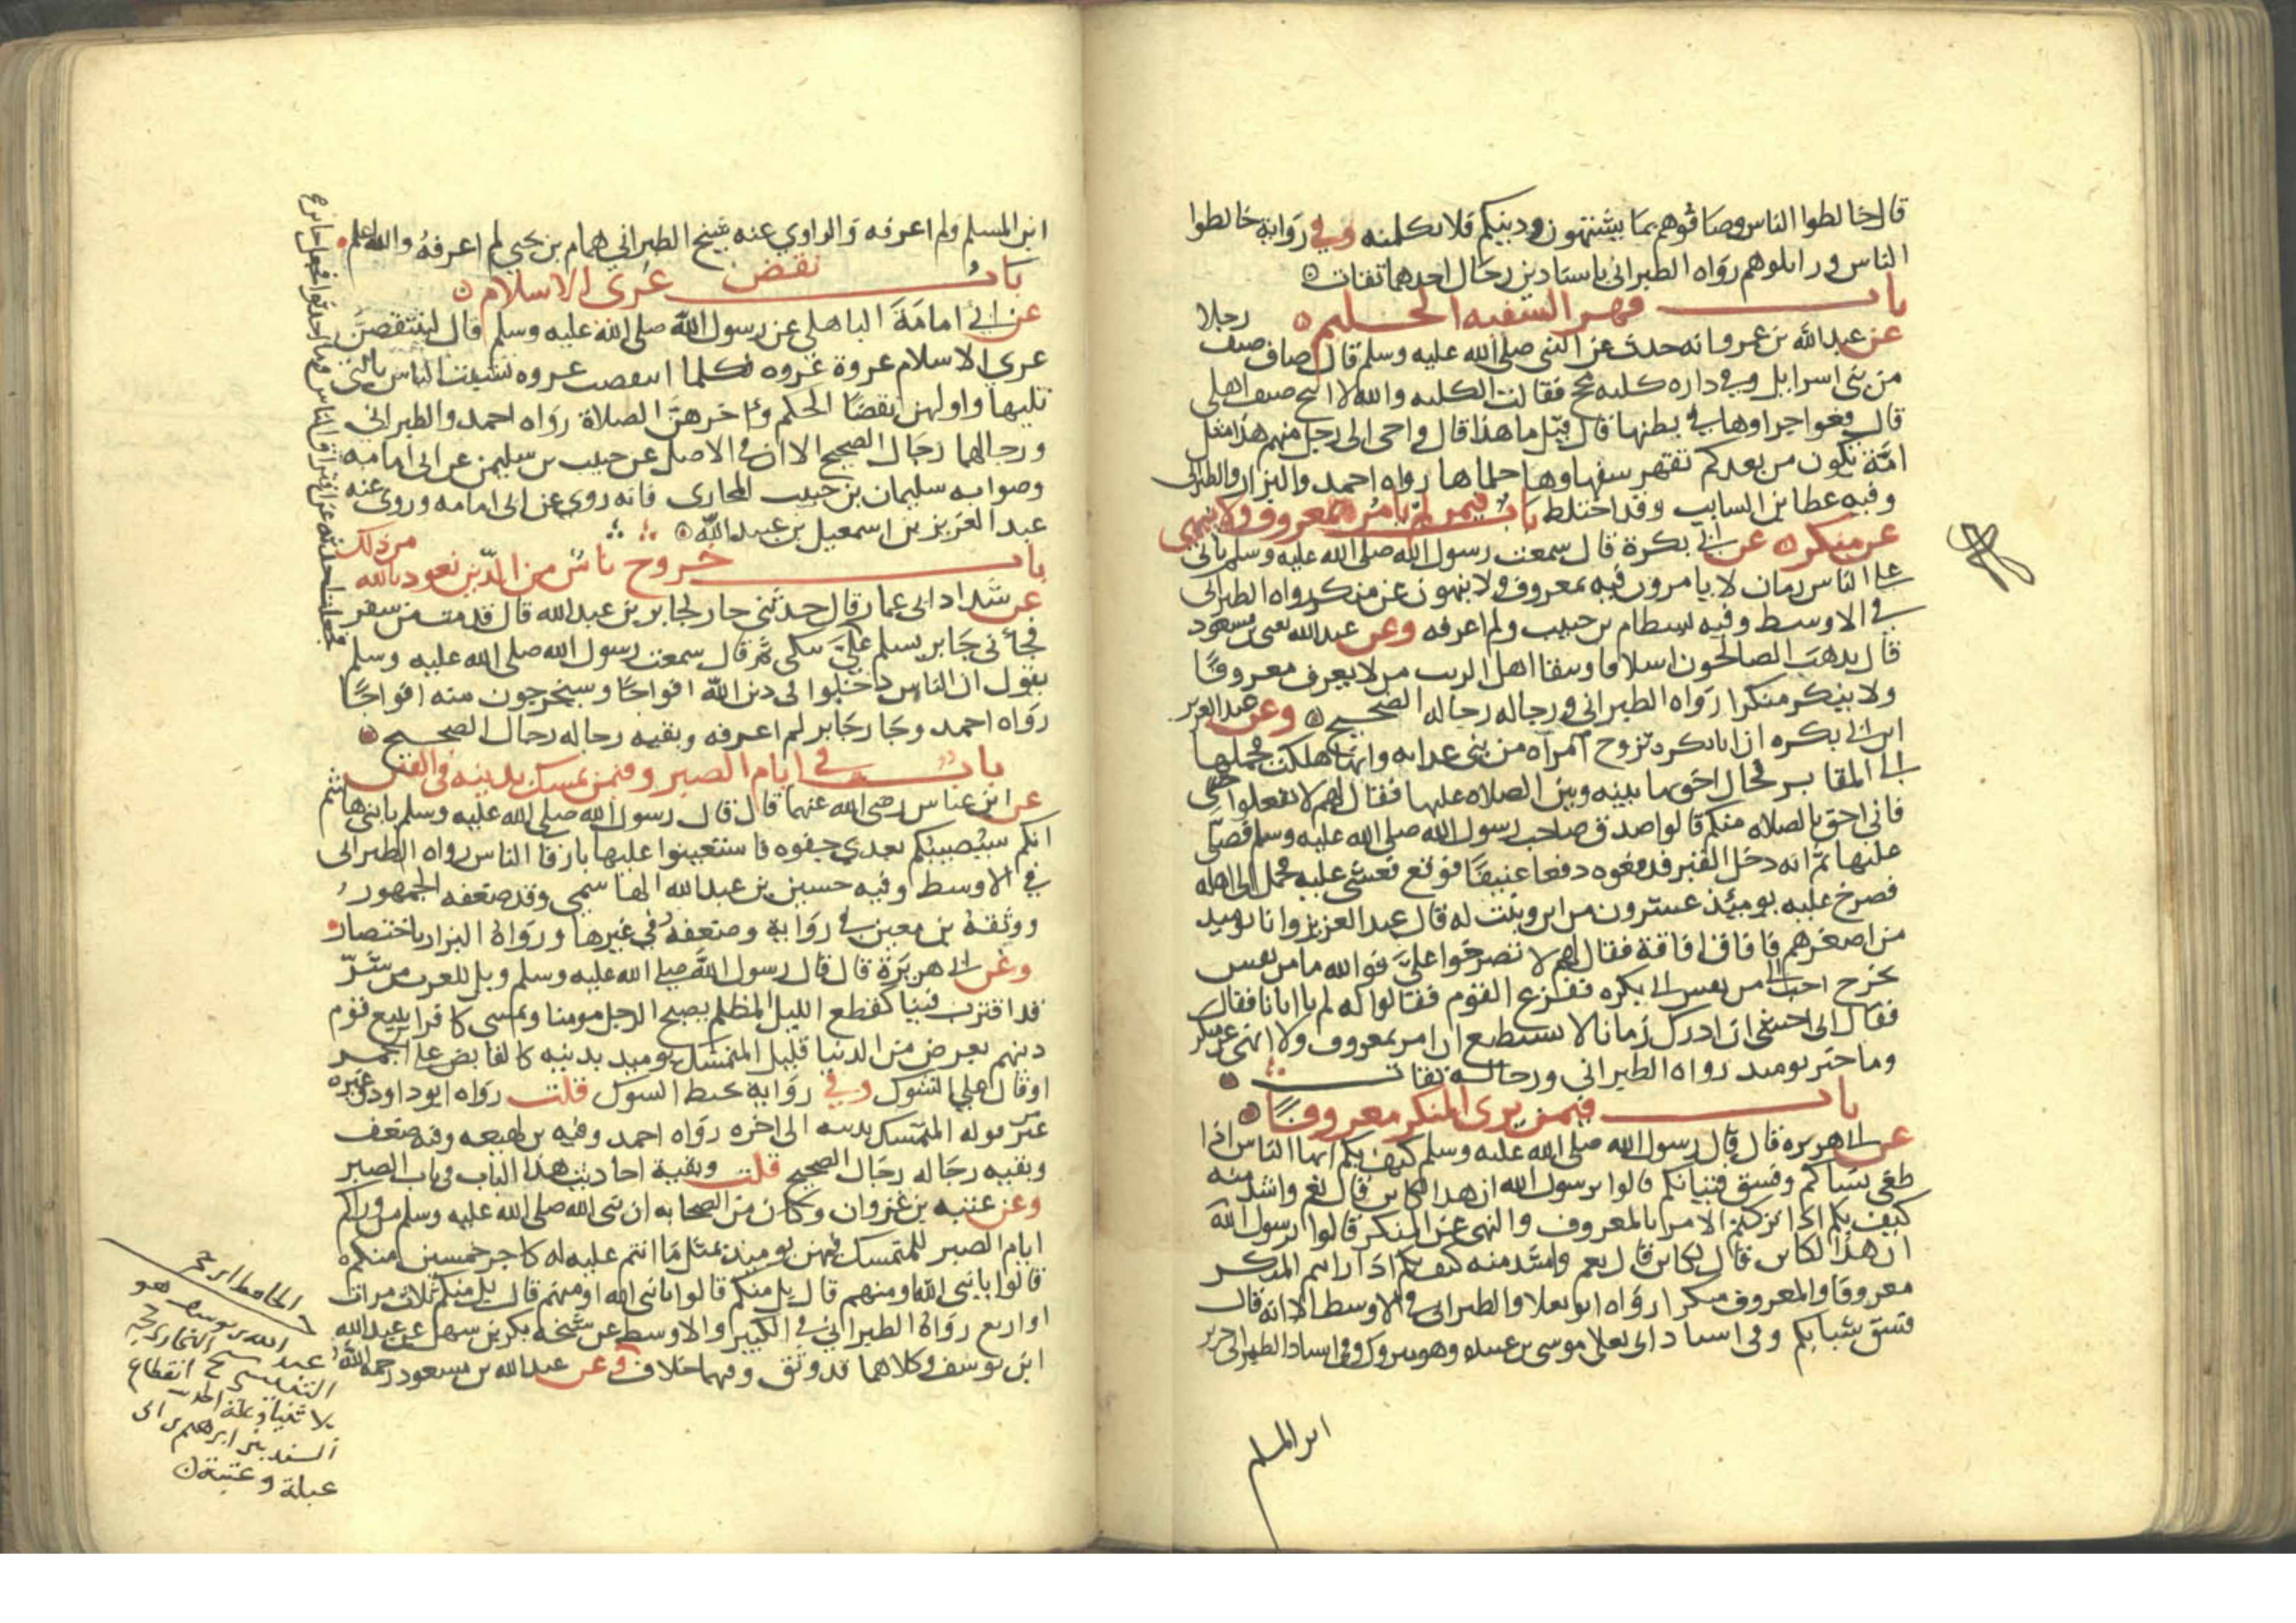 قال خالطوا الناس وصافوهم بما يشتهون ودينكم فلا تكلمنه وفي رواية خالطوا
الناس وزايلوهم رواه الطبراني باسنادين رجال احدهما ثقات
باب قهر السفيه الحليم
عن عبدالله بن عمرو انه حدث عن النبي صلى الله عليه وسلم قال ضاف ضيف رجلا
من بني اسرايل وفي داره كلبة مجح فقالت الكلبة والله لا انبح ضيف اهلي
قال فعوا جراوها في بطنها قال قيل ما هذا قال فاوحى الى رجل منهم هذا مثل
امة تكون من بعدكم تقهر سفهاوها حلماها رواه احمد والبزار والطبراني
وفيه عطا بن السايب وقد اختلط باب فيمن لم يامر بمعروف ولا ينهى
عن منكر عن ابي بكرة قال سمعت رسول الله صلى الله عليه وسلم ياتي
على الناس زمان لا يامرون فيه بمعروف ولا ينهون عن منكر رواه الطبراني
في الاوسط وفيه بسطام بن حبيب ولم اعرفه وعن عبدالله يعني بن مسعود
قال يذهب الصالحون اسلافا ويبقا اهل الريب من لا يعرف معروفا
ولا ينكر منكرا رواه الطبراني ورجاله رجاله الصحيح وعن عبد العزيز
ابن ابي بكره ان ابا بكره تزوج امراه من بني غدانه وانها هلكت فحملها
الى المقابر فحال اخوتها بينه وبين الصلاه عليها فقال لهم لا تفعلوا
فاني احق بالصلاه منكم قالوا صدق صاحب رسول الله صلى الله عليه وسلم فصلى
عليها ثم انه دخل القبر فدفعوه دفعا عنيفا فوقع فغشي عليه فحمل الى اهله
فصرخ عليه يومئذ عشرون من ابن وبنت له قال عبد العزيز وانا يوميد
من اصغرهم فافاق افاقة فقال لهم لا تصرخوا علي فوالله ما من نفس
تخرج احب الي من نفس ابي بكره ففزع القوم فقالوا له لم يا ابانا فقال
فقال اني اخشى ان ادرك زمانا لا استطيع ان امر بمعروف ولا انهى عن منكر
وما خير يوميد رواه الطبراني ورجاله ثقات
باب فيمن يرى المنكر معروفا
عن ابي هريره قال قال رسول الله صلى الله عليه وسلم كيف بكم ايها الناس اذا
طغى نساكم وفسق فتيانكم قالوا يرسول الله ان هذا لكاين قال نعم واشد منه
كيف بكم اذا تركتم الامر بالمعروف والنهي عن المنكر قالوا يرسول الله
ان هذا لكاين قال نعم واشد منه كيف بكم اذا رايتم المنكر
معروفا والمعروف منكرا رواه ابو يعلا والطبراني في الاوسط الا انه قال
فسق شبابكم وفي اسناد ابي يعلا موسى بن عبيده وهو متروك وفي اسناد الطبراني جرير
ابن المسلم
ابن المسلم ولم اعرفه والراوي عنه شيخ الطبراني همام بن يحيى لم اعرفه والله اعلم
باب نقض عرى الاسلام
عن ابي امامة الباهلي عن رسول الله صلى الله عليه وسلم قال لينتقضن
عرى الاسلام عروة عروه فكلما انتقضت عروه تشبثت الناس بالتي
تليها واولهن نقضا الحكم واخرهن الصلاة رواه احمد والطبراني
ورجالهما رجال الصحيح الا ان في الاصل عن حبيب بن سليمن عن ابي امامه
وصوابه سليمان بن حبيب المحاربي فانه روى عن ابي امامه وروى عنه
عبد العزيز بن اسمعيل بن عبيد الله
باب خروج ناس من الدين نعوذ بالله من ذلك
عن شداد ابي عمار قال حدثني جار لجابر بن عبدالله قال قدمت من سفر
فجاني جابر يسلم علي بكى ثم قال سمعت رسول الله صلى الله عليه وسلم
يقول ان الناس دخلوا في دين الله افواجا وسيخرجون منه افواجا
رواه احمد وجار جابر لم اعرفه وبقيه رجاله رجال الصحيح
باب في ايام الصبر وفيمن تمسك بدينه في الفتن
عن ابن عباس رضي الله عنهما قال قال رسول الله صلى الله عليه وسلم يا بني هاشم
انكم سيصيبكم بعدي جفوه فاستعينوا عليها بارقا الناس رواه الطبراني
في الاوسط وفيه حسين بن عبدالله الهاشمي وقد ضعفه الجمهور
ووثقه بن معين في رواية وضعفه في غيرها ورواه البزار باختصار
وعن ابي هريرة قال قال رسول الله صلى الله عليه وسلم ويل للعرب من شر
قد اقترب فتنا كقطع الليل المظلم يصبح الرجل مومنا ويمسي كافرا يبيع قوم
دينهم بعرض من الدنيا قليل المتمسك يوميد بدينه كالقابض على الجمر
او قال على الشوك وفي رواية بخبط الشوك قلت رواه ابو داود وغيره
غير قوله المتمسك بدينه الى اخره رواه احمد وفيه بن لهيعه وفيه ضعف
وبقيه رجاله رجال الصحيح قلت وبقية احاديث هذا الباب في باب الصبر
وعن عتبه بن غزوان وكان من الصحابه ان نبي الله صلى الله عليه وسلم من وراكم
ايام الصبر للمتمسك فيهن يوميذ بمثل ما انتم عليه له كاجر خمسين منكم
قالوا يا نبي الله اومنهم قال بل منكم قالوا يا نبي الله اومنهم قال بل منكم ثلاث مرات
او اربع رواه الطبراني في الكبير والاوسط عن شيخه بكر بن سهل عن عبد الله
ابن يوسف وكلاهما قد وثق وفيهما خلاف وعن عبد الله بن مسعود رحمه الله
الحافظ ابن حجر
عبد الله بن يوسف هو
التنيسي شيخ البخاري حجة
بلا ثنيا وعلة الحديث انقطاع
السند بين ابرهيم بن ابي
عبلة وعتبة